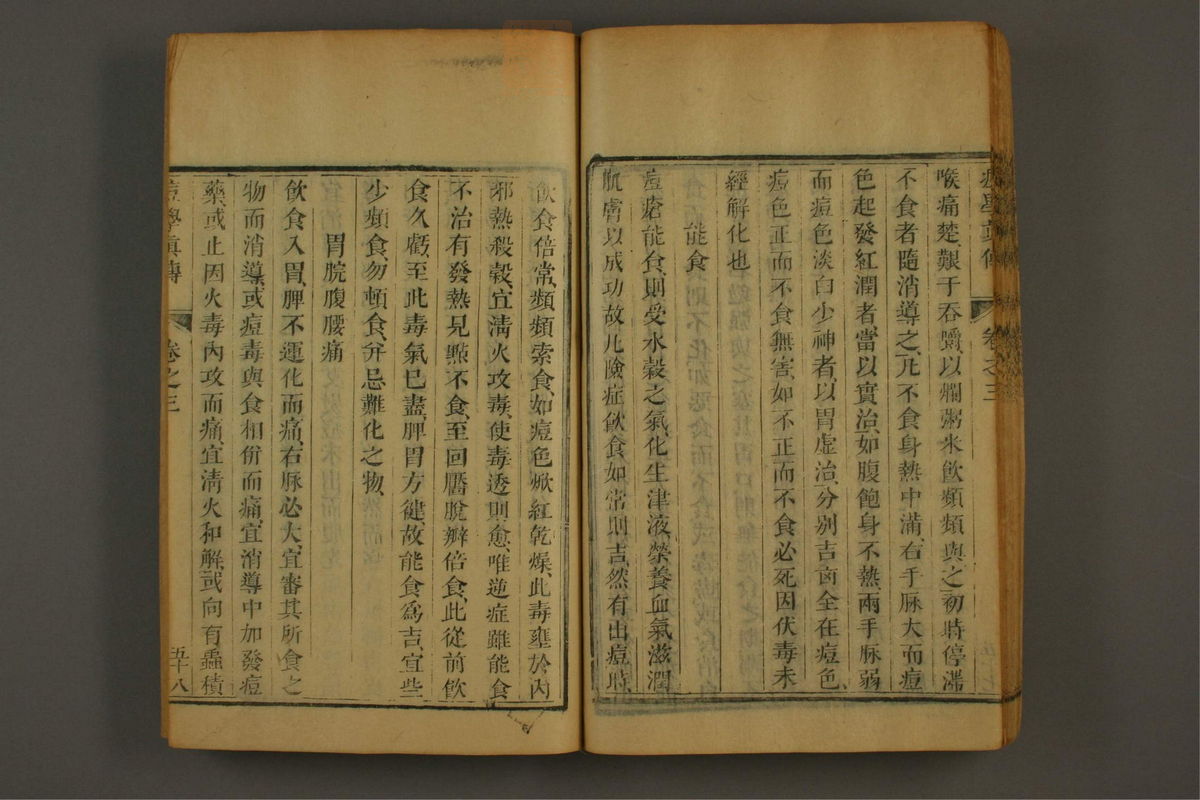 痘學眞傳 卷之三
喉痛楚、艱于吞嚼、以爛粥米飲頻頻與之、初時停滯
不食者、隨消導之、凡不食身熱中滿、右手脉大而痘
色起發紅潤者、當以實治、如腹飽身不熱、兩手脉弱
而痘色淡白少神者、以胃虛治、分別吉凶全在痘色、
痘色正而不食無害、如不正而不食必死、因伏毒未
經解化也
能食
痘瘡能食、則受水穀之氣、化生津液、榮養血氣、滋潤
肌膚以成功、故凡險症飲食如常則吉、然有出痘時、
飲食倍常、頻頻索食、如痘色焮紅乾燥、此毒壅於內
邪熱殺穀、宜淸火攻毒、使毒透則愈、唯逆症雖能食
不治、有發熱見點不食、至回靨脫瘢倍食、此從前飲
食久虧、至此毒氣已盡、脾胃方健、故能食爲吉、宜些
少頻食、勿頓食、并忌難化之物、
胃脘腹腰痛
飲食入胃、脾不運化而痛、右脉必大、宜審其所食之
物而消導、或痘毒與食相倂而痛、宜消導中加發痘
藥、或止因火毒內攻而痛、宜淸火和解、或向有蟲積
痘學眞傳 卷之三 五十八